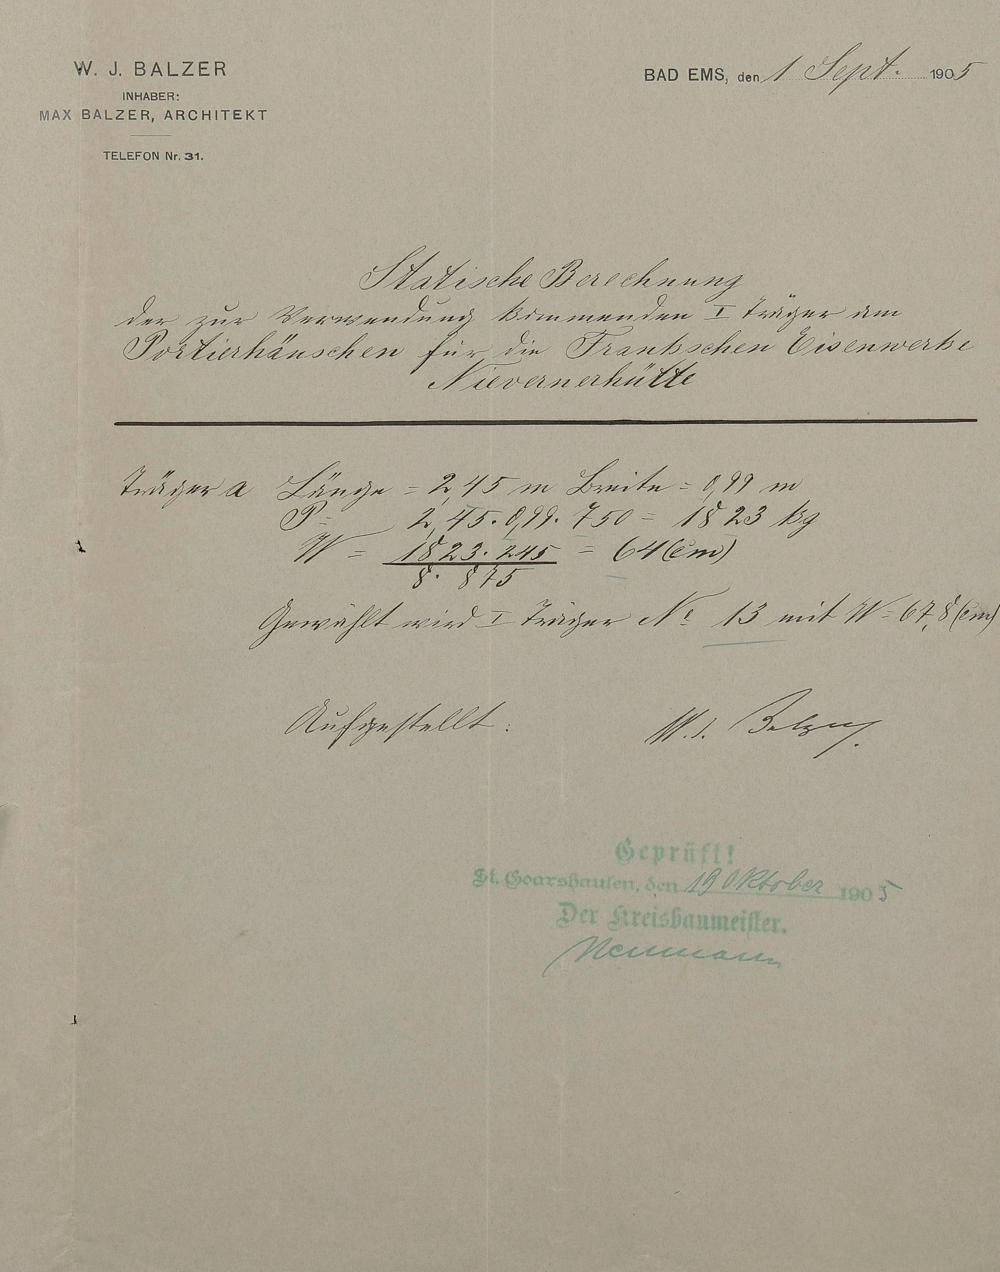 W. J. BALZER
INHABER:
MAX BALZER, ARCHITEKT
TELEFON Nr. 31.
BAD EMS, den 1 Sept. 1905
Statische Berechnung
der zur Verwendung kommenden I Träger am
Portierhäuschen für die Frankschen Eisenwerke
Nievernerhütte
Träger a Länge = 2,45 m Breite = 0,99 m
P = 2,45 . 0,99 . 750 = 1823 kg
W = 1823 . 245 = 64 (cm)
8 . 875
Gewählt wird I Träger No 13 mit W = 67,8 (cm)
Aufgestellt: W. J. Balzer.
Geprüft!
St. Goarshausen, den 19 Oktober 1905
Der Kreisbaumeister.
Neumann